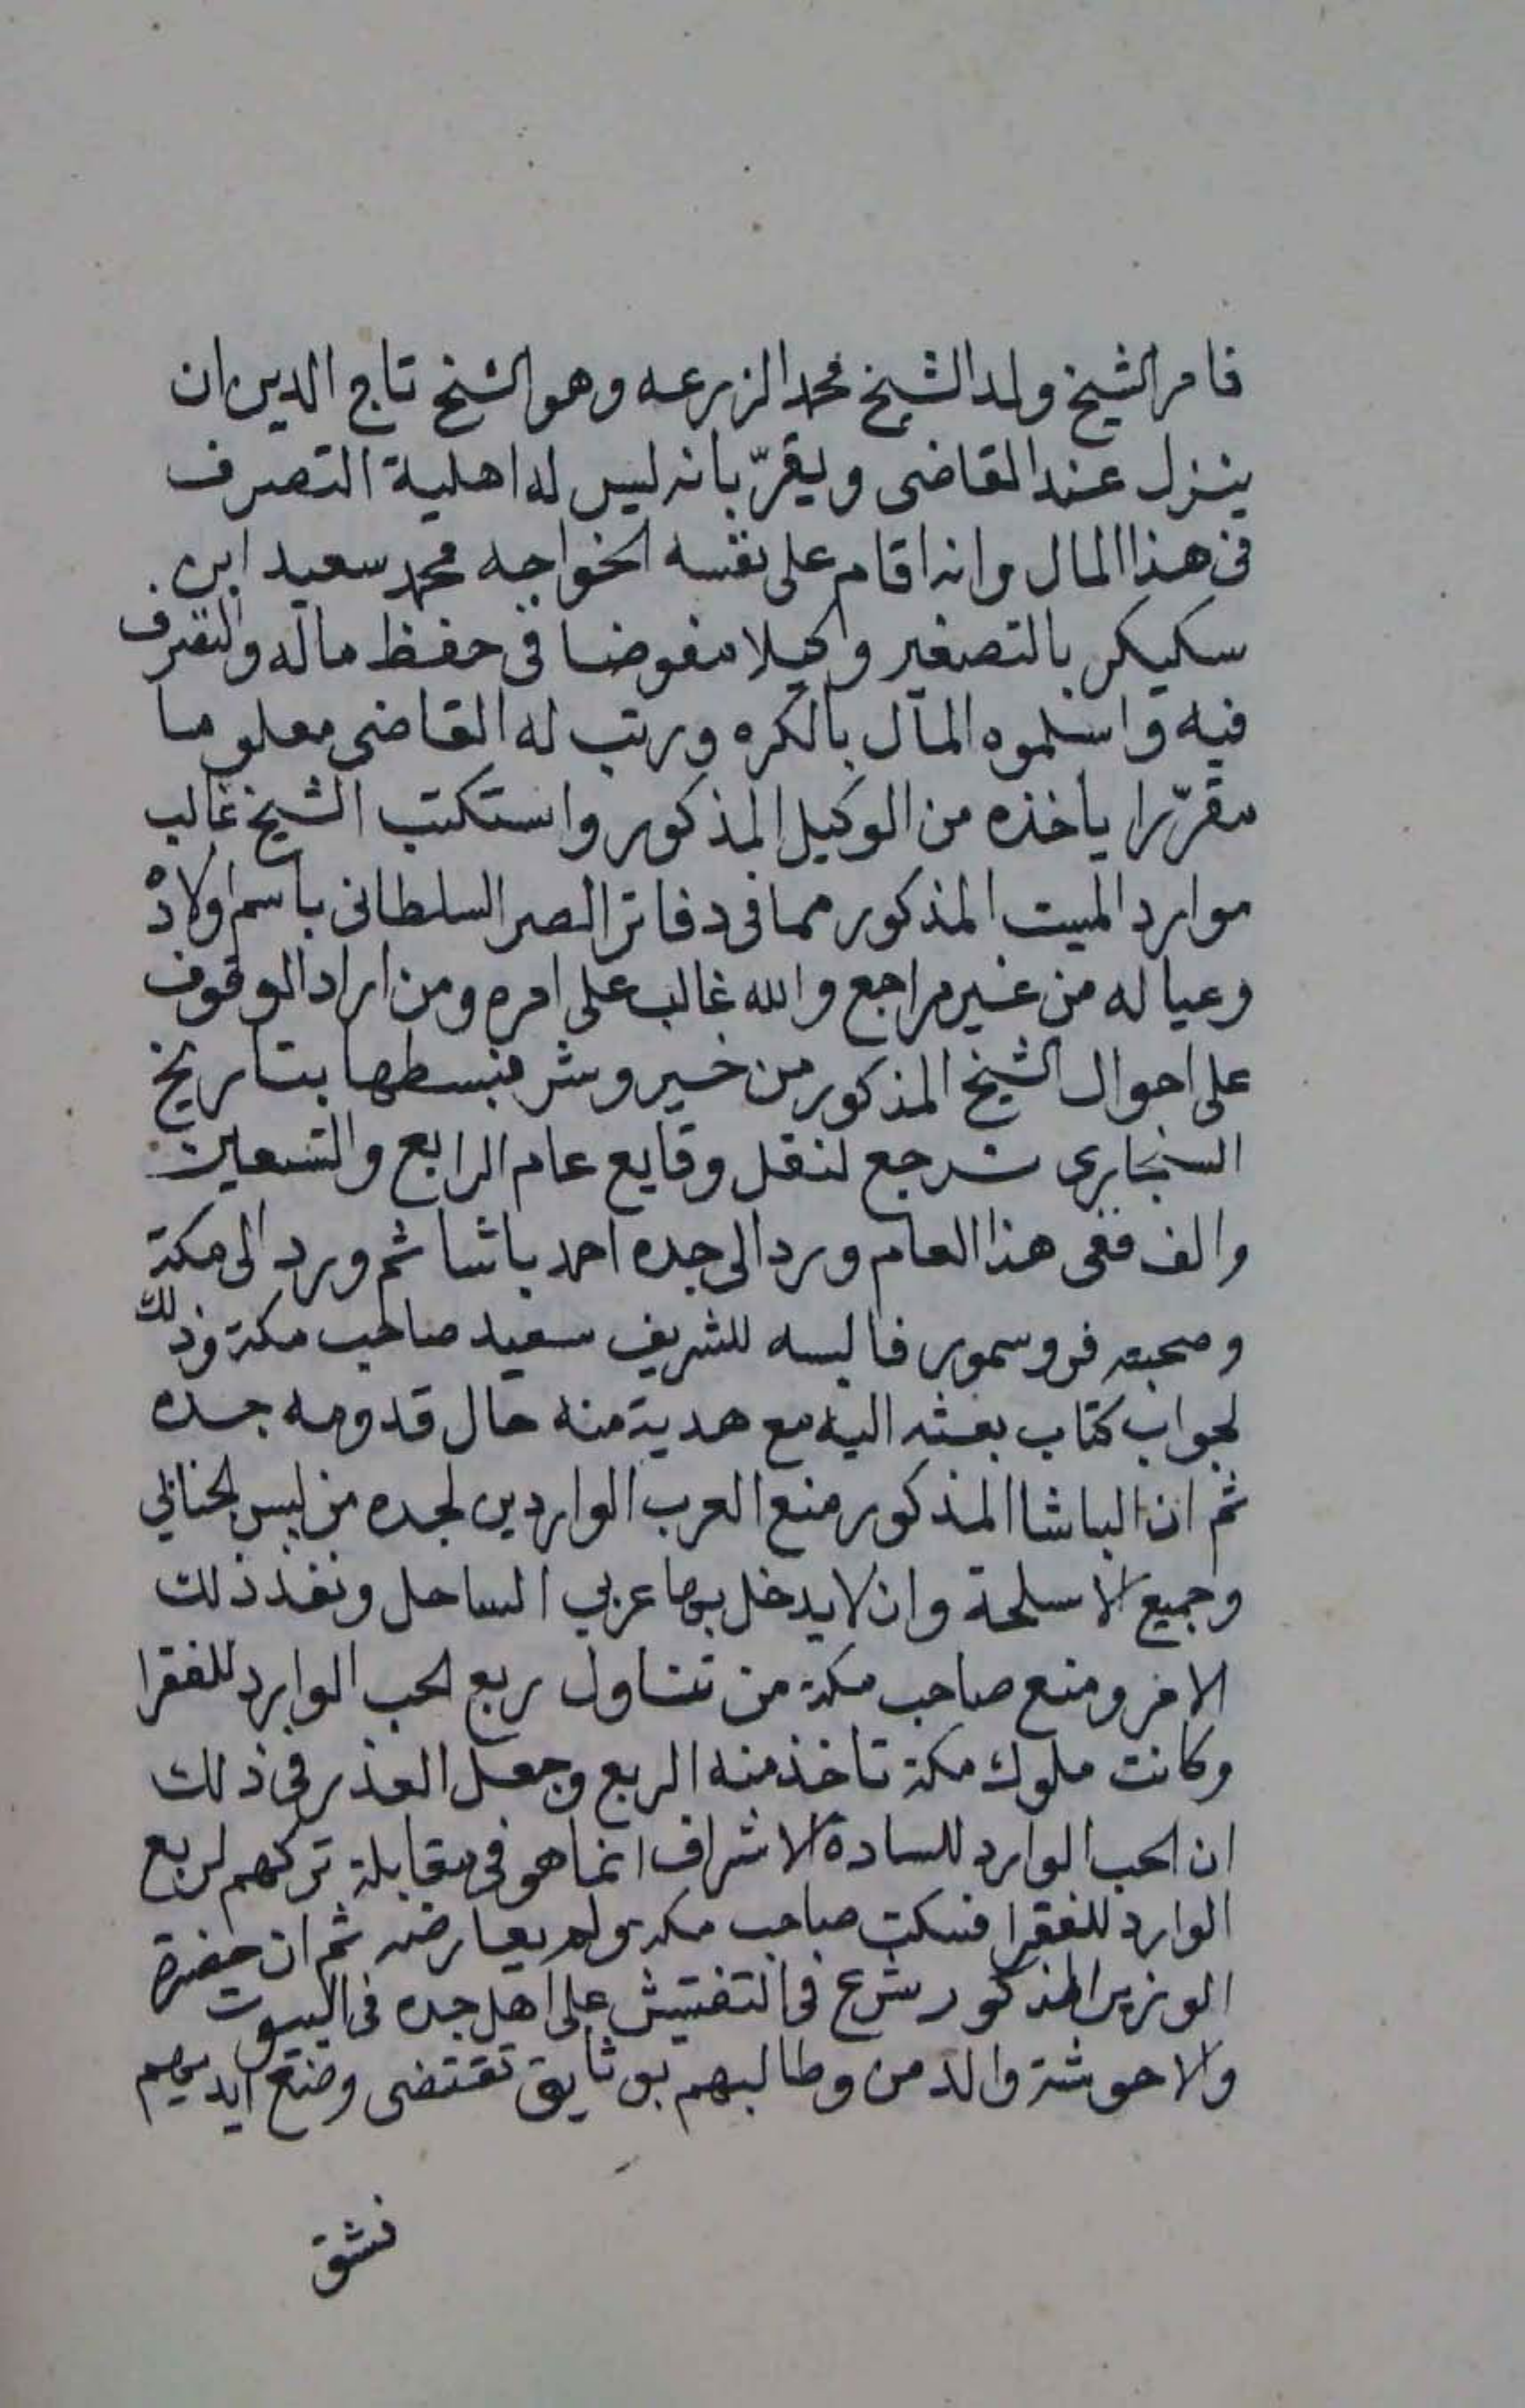 فامر الشيخ ولد الشيخ محمد الزرعه وهو الشيخ تاج الدين ان
ينزل عند القاضى ويقرّ بانه ليس له اهلية التصرف
فى هذا المال وانه اقام على نفسه الخواجه محمد سعيد ابن
سكيكر بالتصغير وكيلا مفوضا فى حفظ ماله والتصرف
فيه واسلموه المال بالكره ورتب له القاضى معلوما
مقرّرا ياخذه من الوكيل المذكور واستكتب الشيخ غالب
موارد الميت المذكور مما فى دفاتر الصر السلطانى باسم اولاده
وعياله من غير مراجع والله غالب على امره ومن اراد الوقوف
على احوال الشيخ المذكور من خير وشر فبسطها بتاريخ
السنجارى نرجع لنقل وقايع عام الرابع والتسعين
والف ففى هذا العام ورد الى جده احمد باشا ثم ورد الى مكة
وصحبته فرو سمور فالبسه للشريف سعيد صاحب مكة وذلك
لجواب كتاب بعثه اليه مع هدية منه حال قدومه جده
ثم ان الباشا المذكور منع العرب الواردين لجده من لبس الجنابي
وجميع الاسلحة وان لا يدخل بها عربي الساحل ونفذ ذلك
الامر ومنع صاحب مكة من تناول ربع الحب الوارد للفقرا
وكانت ملوك مكة تاخذ منه الربع وجعل العذر فى ذلك
ان الحب الوارد للسادة الاشراف انما هو فى مقابلة تركهم لربع
الوارد للفقرا فسكت صاحب مكة ولم يعارضه ثم ان حضرة
الوزير المذكور شرع فى التفتيش على اهل جده فى البيوت
والاحوشة والدمن وطالبهم بوثايق تقتضى وضع ايديهم